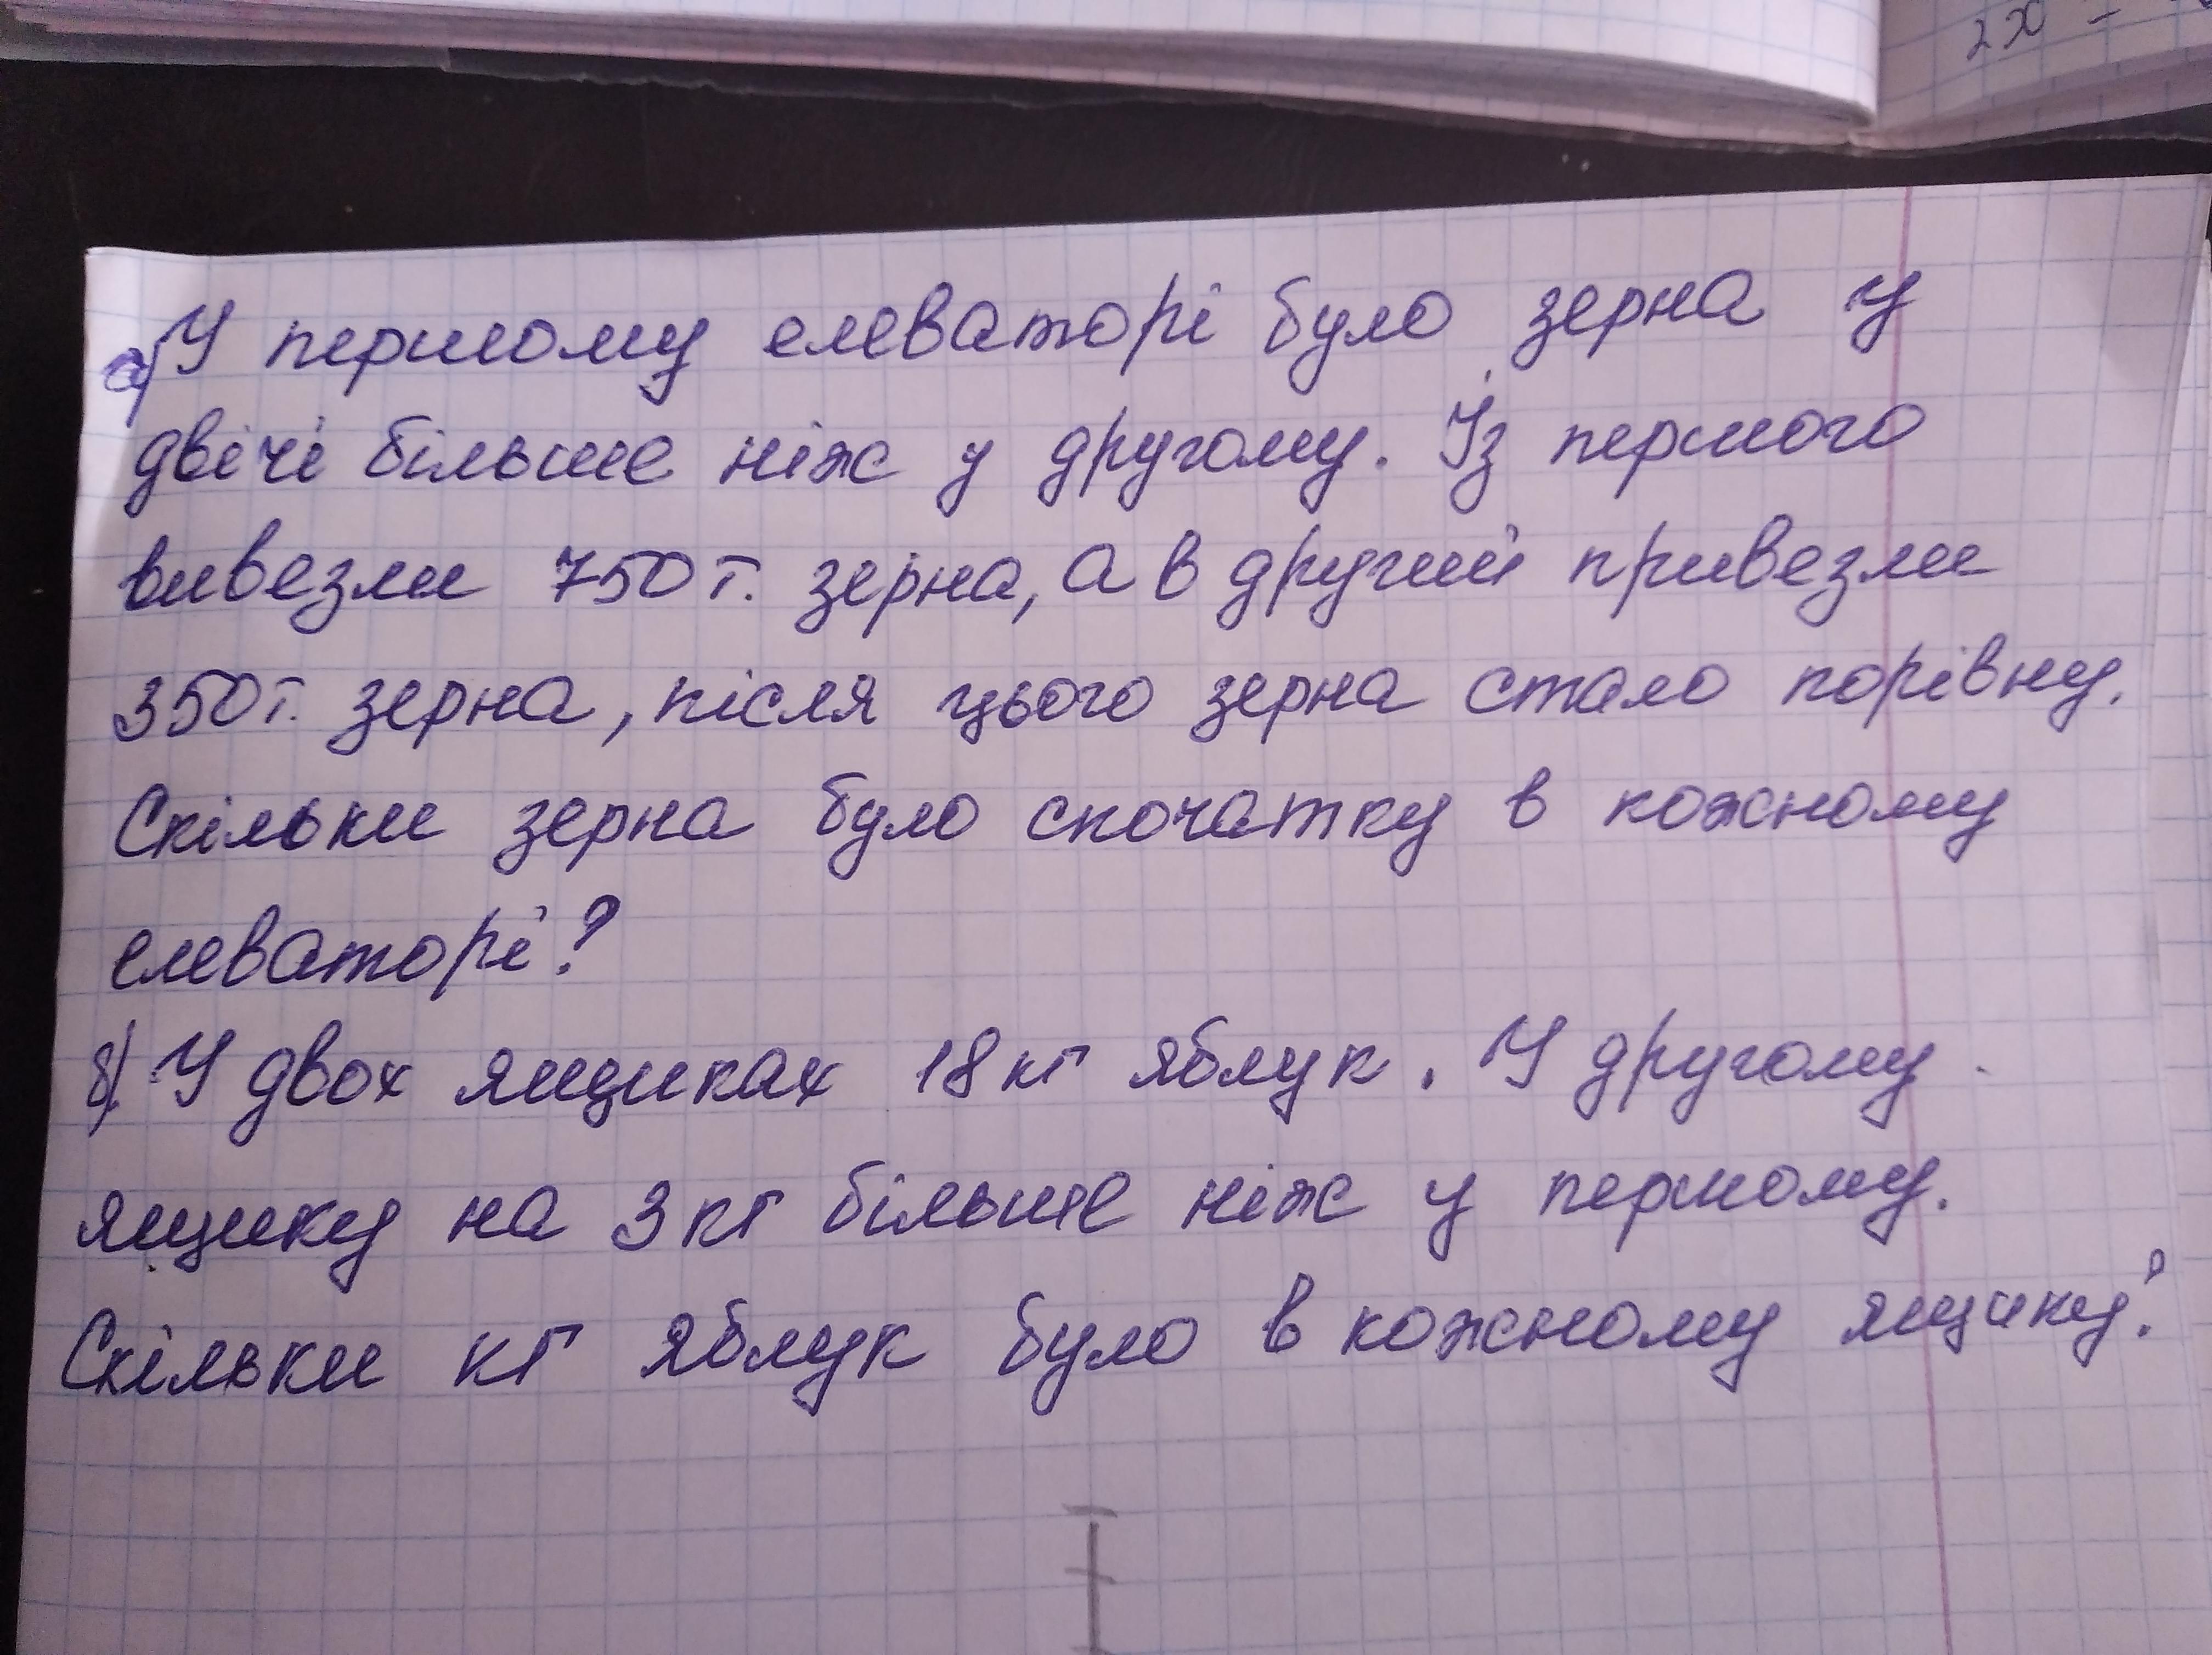 2x =
а) У першому елеваторі було зерна у
двічі більше ніж у другому. Із першого
вивезли 750 т. зерна, а в другий привезли
350 т. зерна, після цього зерна стало порівну.
Скільки зерна було спочатку в кожному
елеваторі?
б) У двох ящиках 18 кг яблук. У другому
ящику на 3 кг більше ніж у першому.
Скільки кг яблук було в кожному ящику?